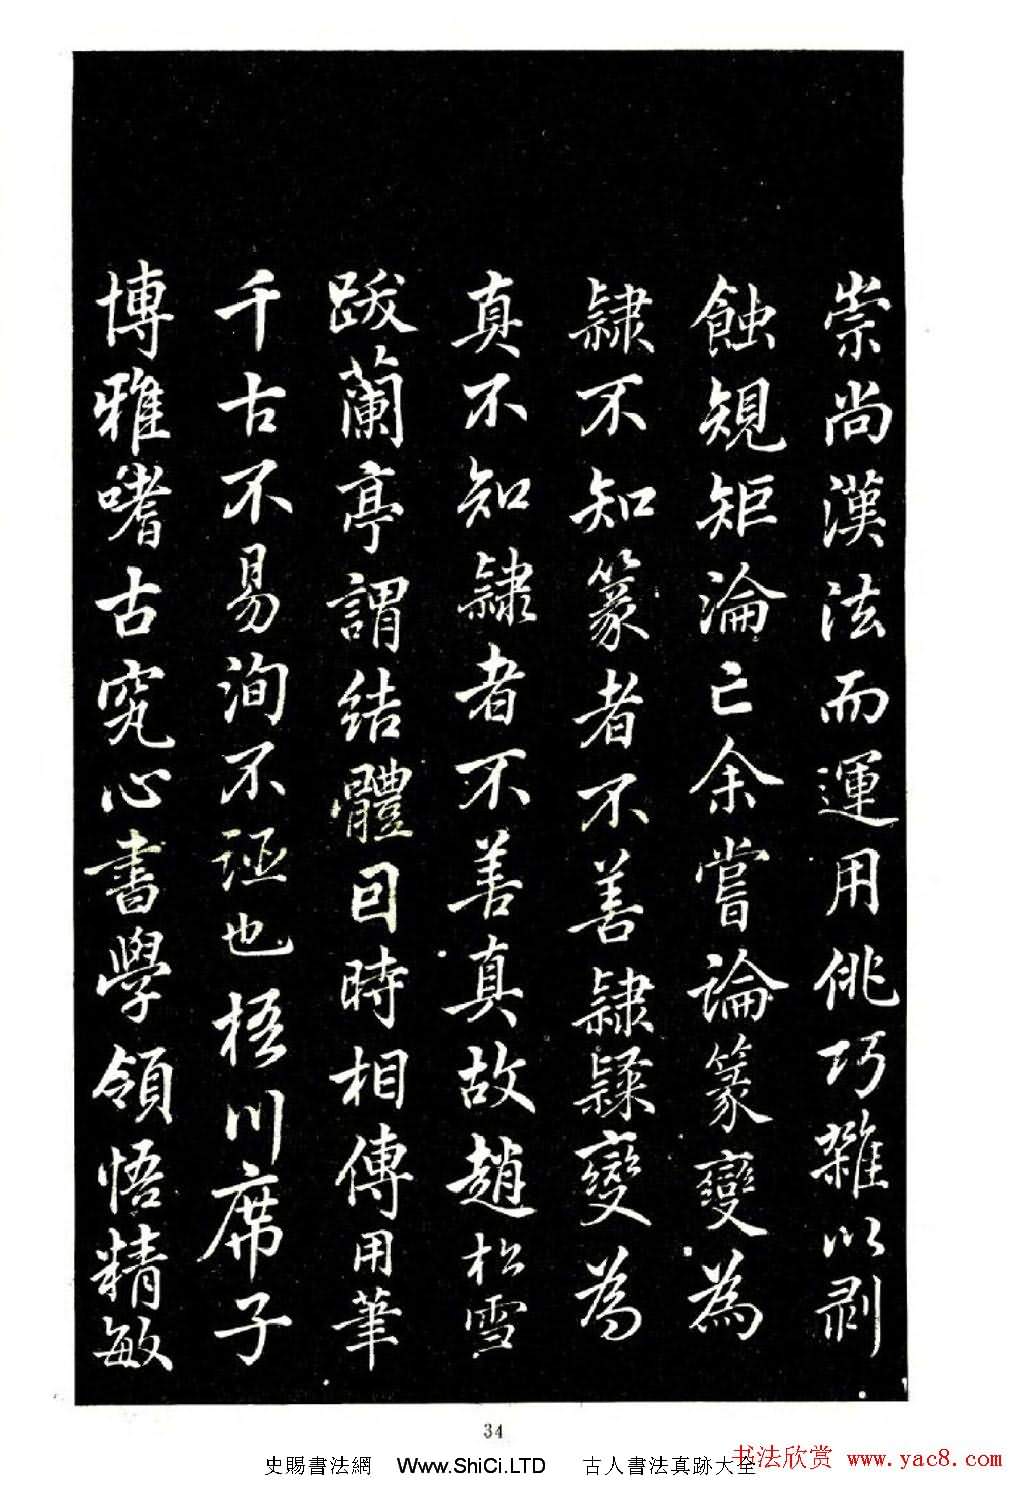 崇尚漢法而運用佻巧雜以剥
蝕規矩淪亡余嘗論篆變為
隷不知篆者不善隷隷變為
真不知隷者不善真故趙松雪
跋蘭亭謂結體因時相傳用筆
千古不易洵不誣也梧川席子
博雅嗜古究心書學領悟精敏
34
史賜書法網 Www.ShiCi.LTD 古人書法真跡大全
书法欣赏 www.yac8.com